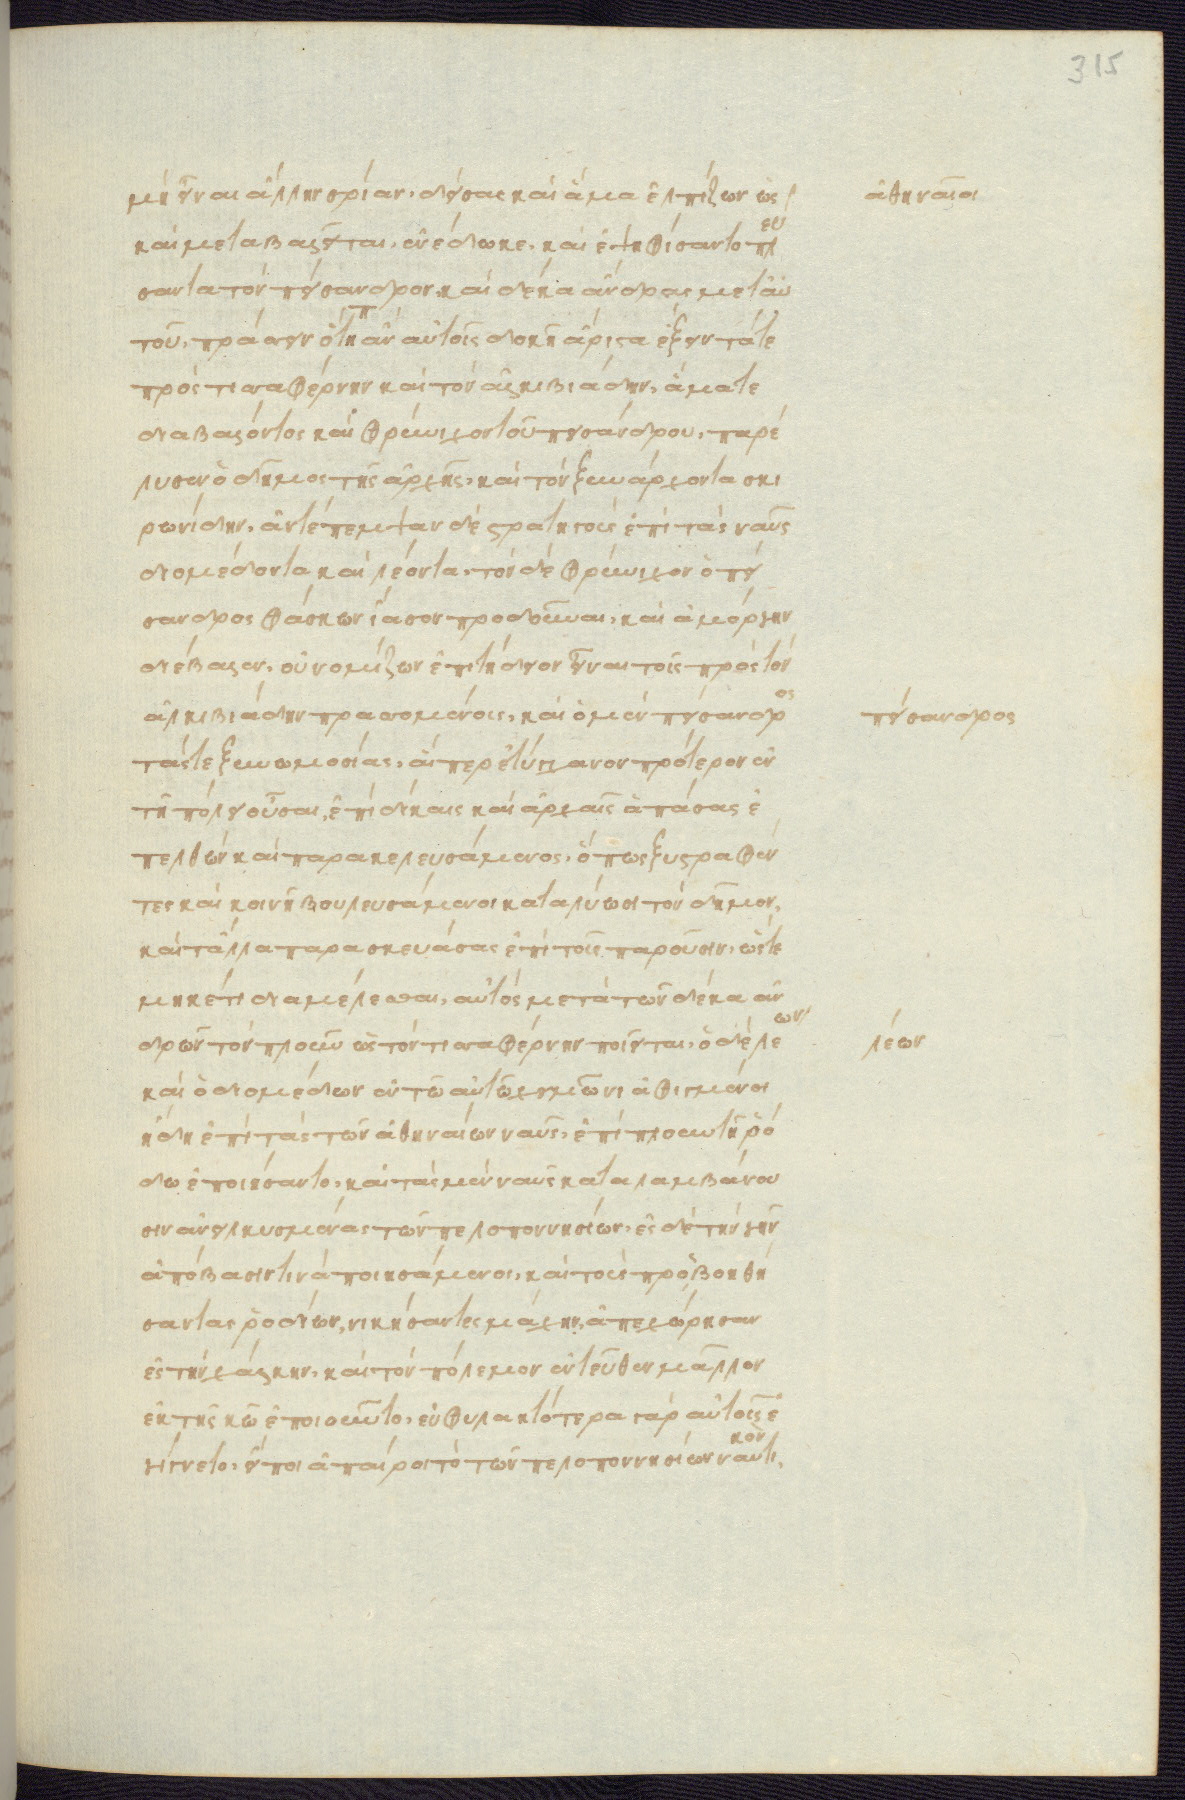 315
μὴ εἶναι ἄλλην σωτηρίαν, δείσας καὶ ἅμα ἐλπίζων ὡς
ἀθηναῖοι
καὶ μεταβαλεῖται, ἐνέδωκε. καὶ ἐψηφίσαντο πλεύ
σαντα τὸν πείσανδρον καὶ δέκα ἄνδρας μετ' αὐ
τοῦ, πράσσειν ὅπῃ ἂν αὐτοῖς δοκῇ ἄριστα ἕξειν τά τε
πρὸς τισσαφέρνην καὶ τὸν ἀλκιβιάδην. ἅμα τε
διαβαλόντος καὶ φρύνιχον τοῦ πεισάνδρου, παρέ
λυσεν ὁ δῆμος τῆς ἀρχῆς, καὶ τὸν ξυνάρχοντα σκι
ρωνίδην. ἀντέπεμψαν δὲ στρατηγοὺς ἐπὶ τὰς ναῦς
διομέδοντα καὶ λέοντα. τὸν δὲ φρύνιχον ὁ πεί
σανδρος φάσκων ἴασον προδοῦναι, καὶ ἀμόργην
διέβαλεν, οὐ νομίζων ἐπιτήδειον εἶναι τοῖς πρὸς τὸν
ἀλκιβιάδην πρασσομένοις. καὶ ὁ μὲν πείσανδρος
πείσανδρος
τάς τε ξυνωμοσίας, αἵπερ ἐτύγχανον πρότερον ἐν
τῇ πόλει οὖσαι, ἐπὶ δίκαις καὶ ἀρχαῖς ἁπάσας ἐ
πελθὼν καὶ παρακελευσάμενος, ὅπως ξυστραφέν
τες καὶ κοινῇ βουλευσάμενοι καταλύσωσι τὸν δῆμον,
καὶ τἆλλα παρασκευάσας ἐπὶ τοῖς παροῦσιν, ὥστε
μηκέτι διαμέλεσθαι, αὐτὸς μετὰ τῶν δέκα ἀν
δρῶν τὸν πλοῦν ὡς τὸν τισσαφέρνην ποιεῖται. ὁ δὲ λέων
λέων
καὶ ὁ διομέδων ἐν τῷ αὐτῷ χειμῶνι ἀφιγμένοι
ἤδη ἐπὶ τὰς τῶν ἀθηναίων ναῦς, ἐπίπλουν τῇ ῥό
δῳ ἐποιήσαντο. καὶ τὰς μὲν ναῦς καταλαμβάνου
σιν ἀνειλκυσμένας τῶν πελοποννησίων, ἐς δὲ τὴν γῆν
ἀπόβασίν τινα ποιησάμενοι, καὶ τοὺς προβοηθή
σαντας ῥοδίων, νικήσαντες μάχῃ, ἀπεχώρησαν
ἐς τὴν χάλκην, καὶ τὸν πόλεμον ἐντεῦθεν μᾶλλον
ἐκ τῆς κῶ ἐποιοῦντο. εὐφυλακτότερα γὰρ αὐτοῖς ἐ
γίγνετο, εἴ ποι ἀπαίροι τὸ τῶν πελοποννησίων ναυτικόν.